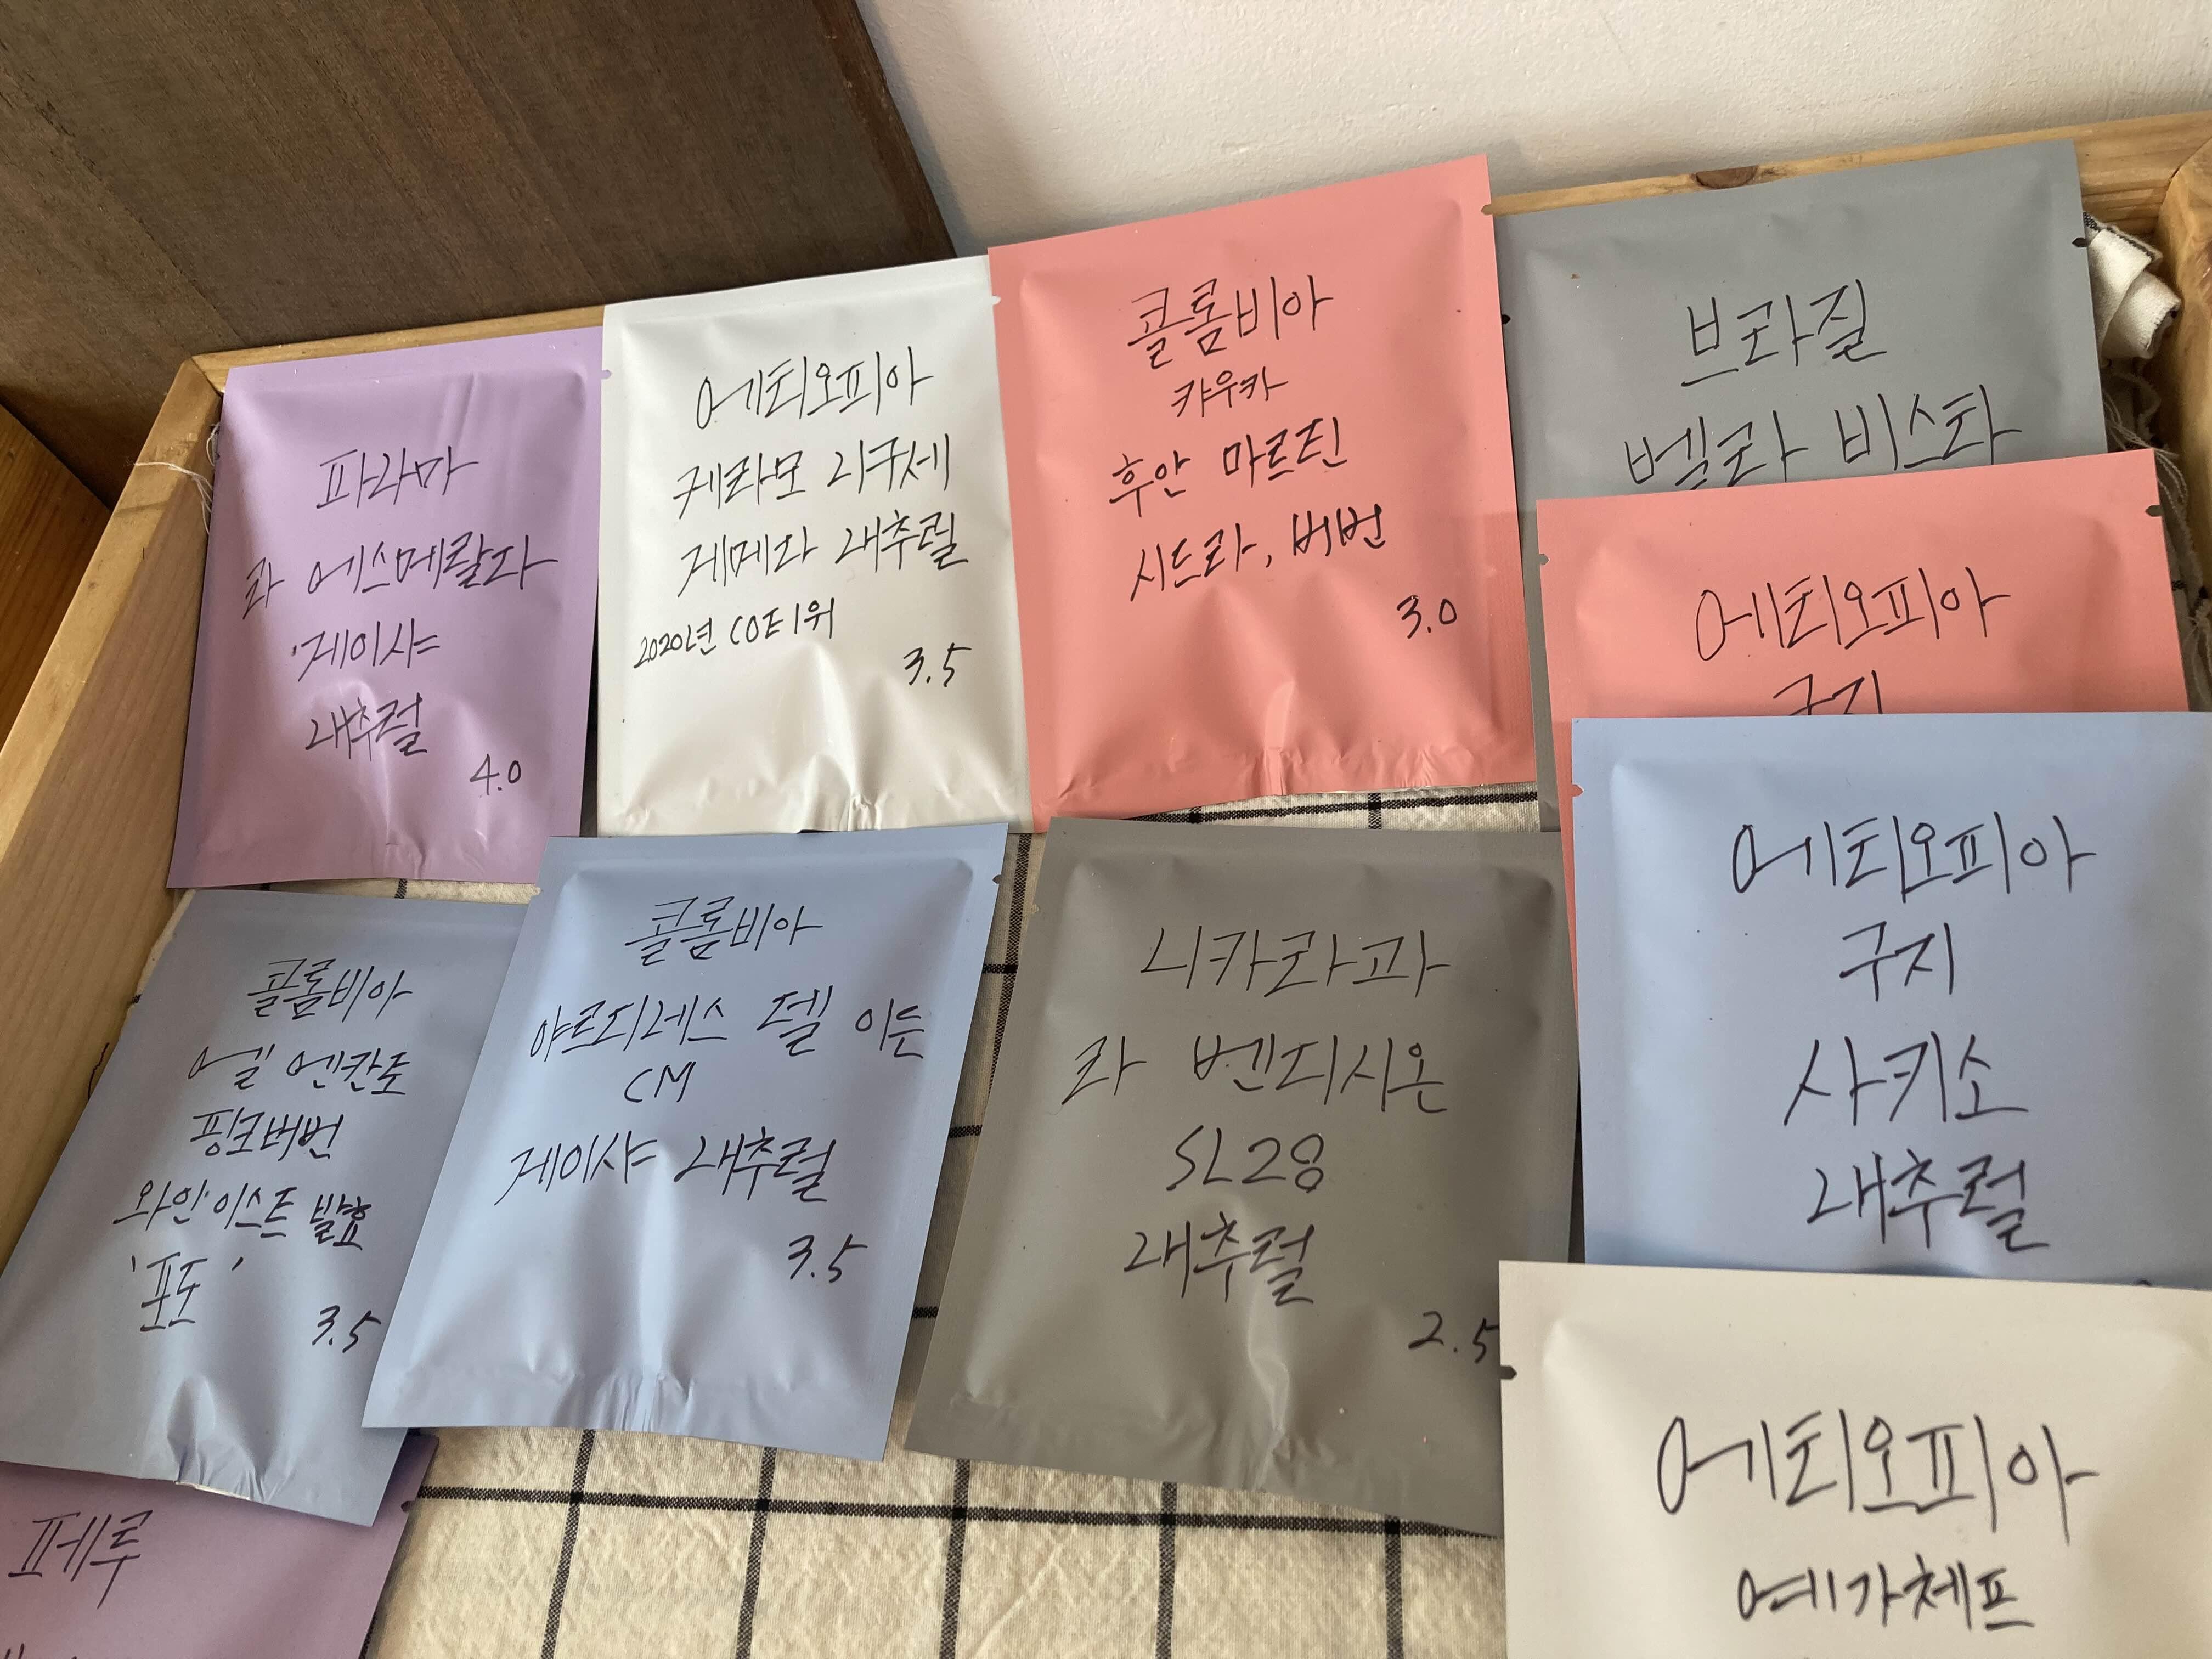 파라마
라 에스메랄다
게이샤
내추럴
4.0
에티오피아
케라모 리쿠세
게메다 내추럴
2020년 COE 1위
3.5
콜롬비아
카우카
후안 마르틴
시드라, 버번
3.0
브라질
벨라 비스타
에티오피아
구지
에티오피아
구지
사키소
내추럴
콜롬비아
엘 엔칸토
핑크버번
와인이스트 발효
'포도'
3.5
콜롬비아
야르디네스 델 이든
CM
게이샤 내추럴
3.5
니카라과
라 벤디시온
SL28
내추럴
2.5
에티오피아
예가체프
페루